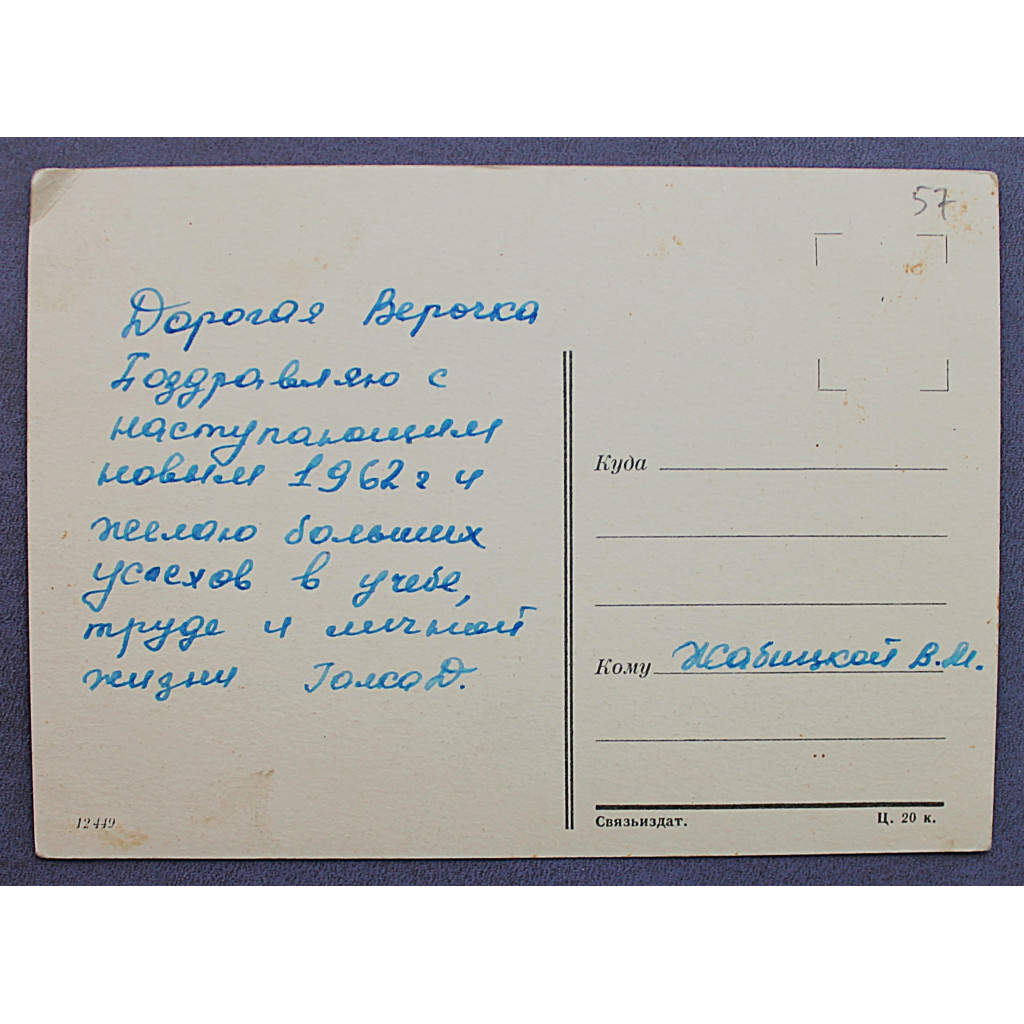 57
Дорогая Верочка
Поздравляю с
наступающим
новым 1962 г и
желаю больших
успехов в учебе,
труде и личной
жизни Галка Д.
Куда
Кому Жабицкой В.М.
12449
Связьиздат.
Ц. 20 к.